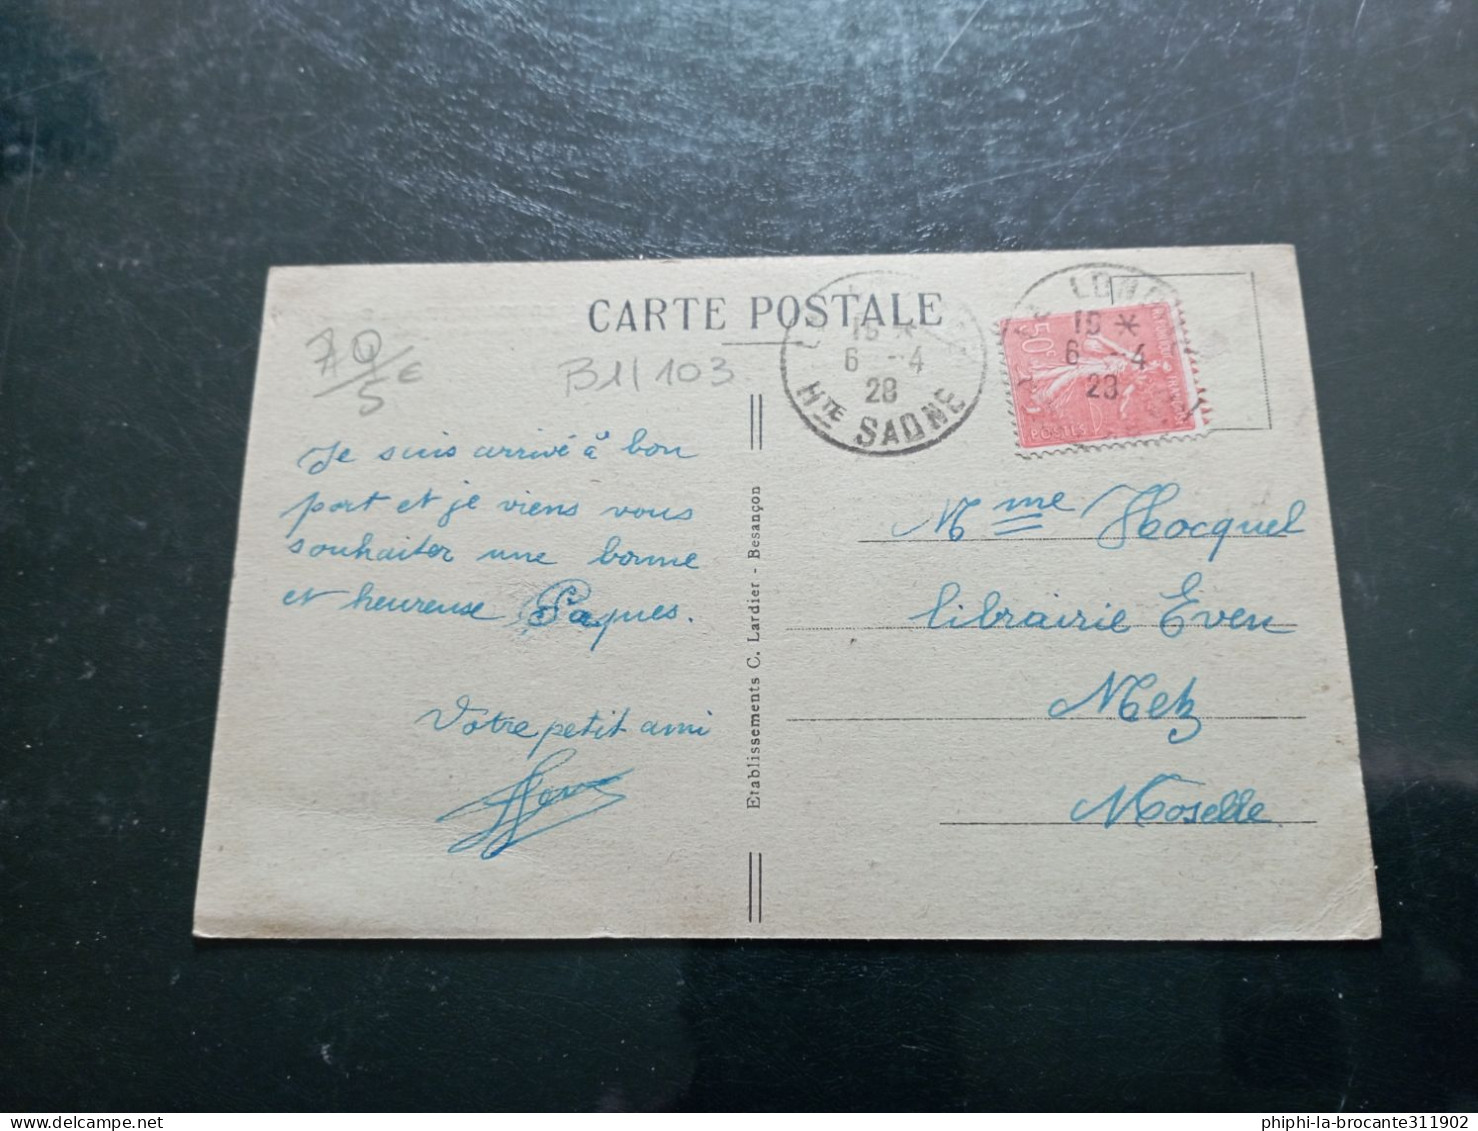 CARTE POSTALE
15 *
6 - 4
28
Hte SAONE
15 *
6 - 4
28
50c
POSTES
5€
B1/103
Je suis arrivé à bon
port et je viens vous
souhaiter une bonne
et heureuse Paques.
Votre petit ami
Etablissements C. Lardier - Besançon
Mme Hocquel
librairie Even
Metz
Moselle
phiphi-la-brocante311902